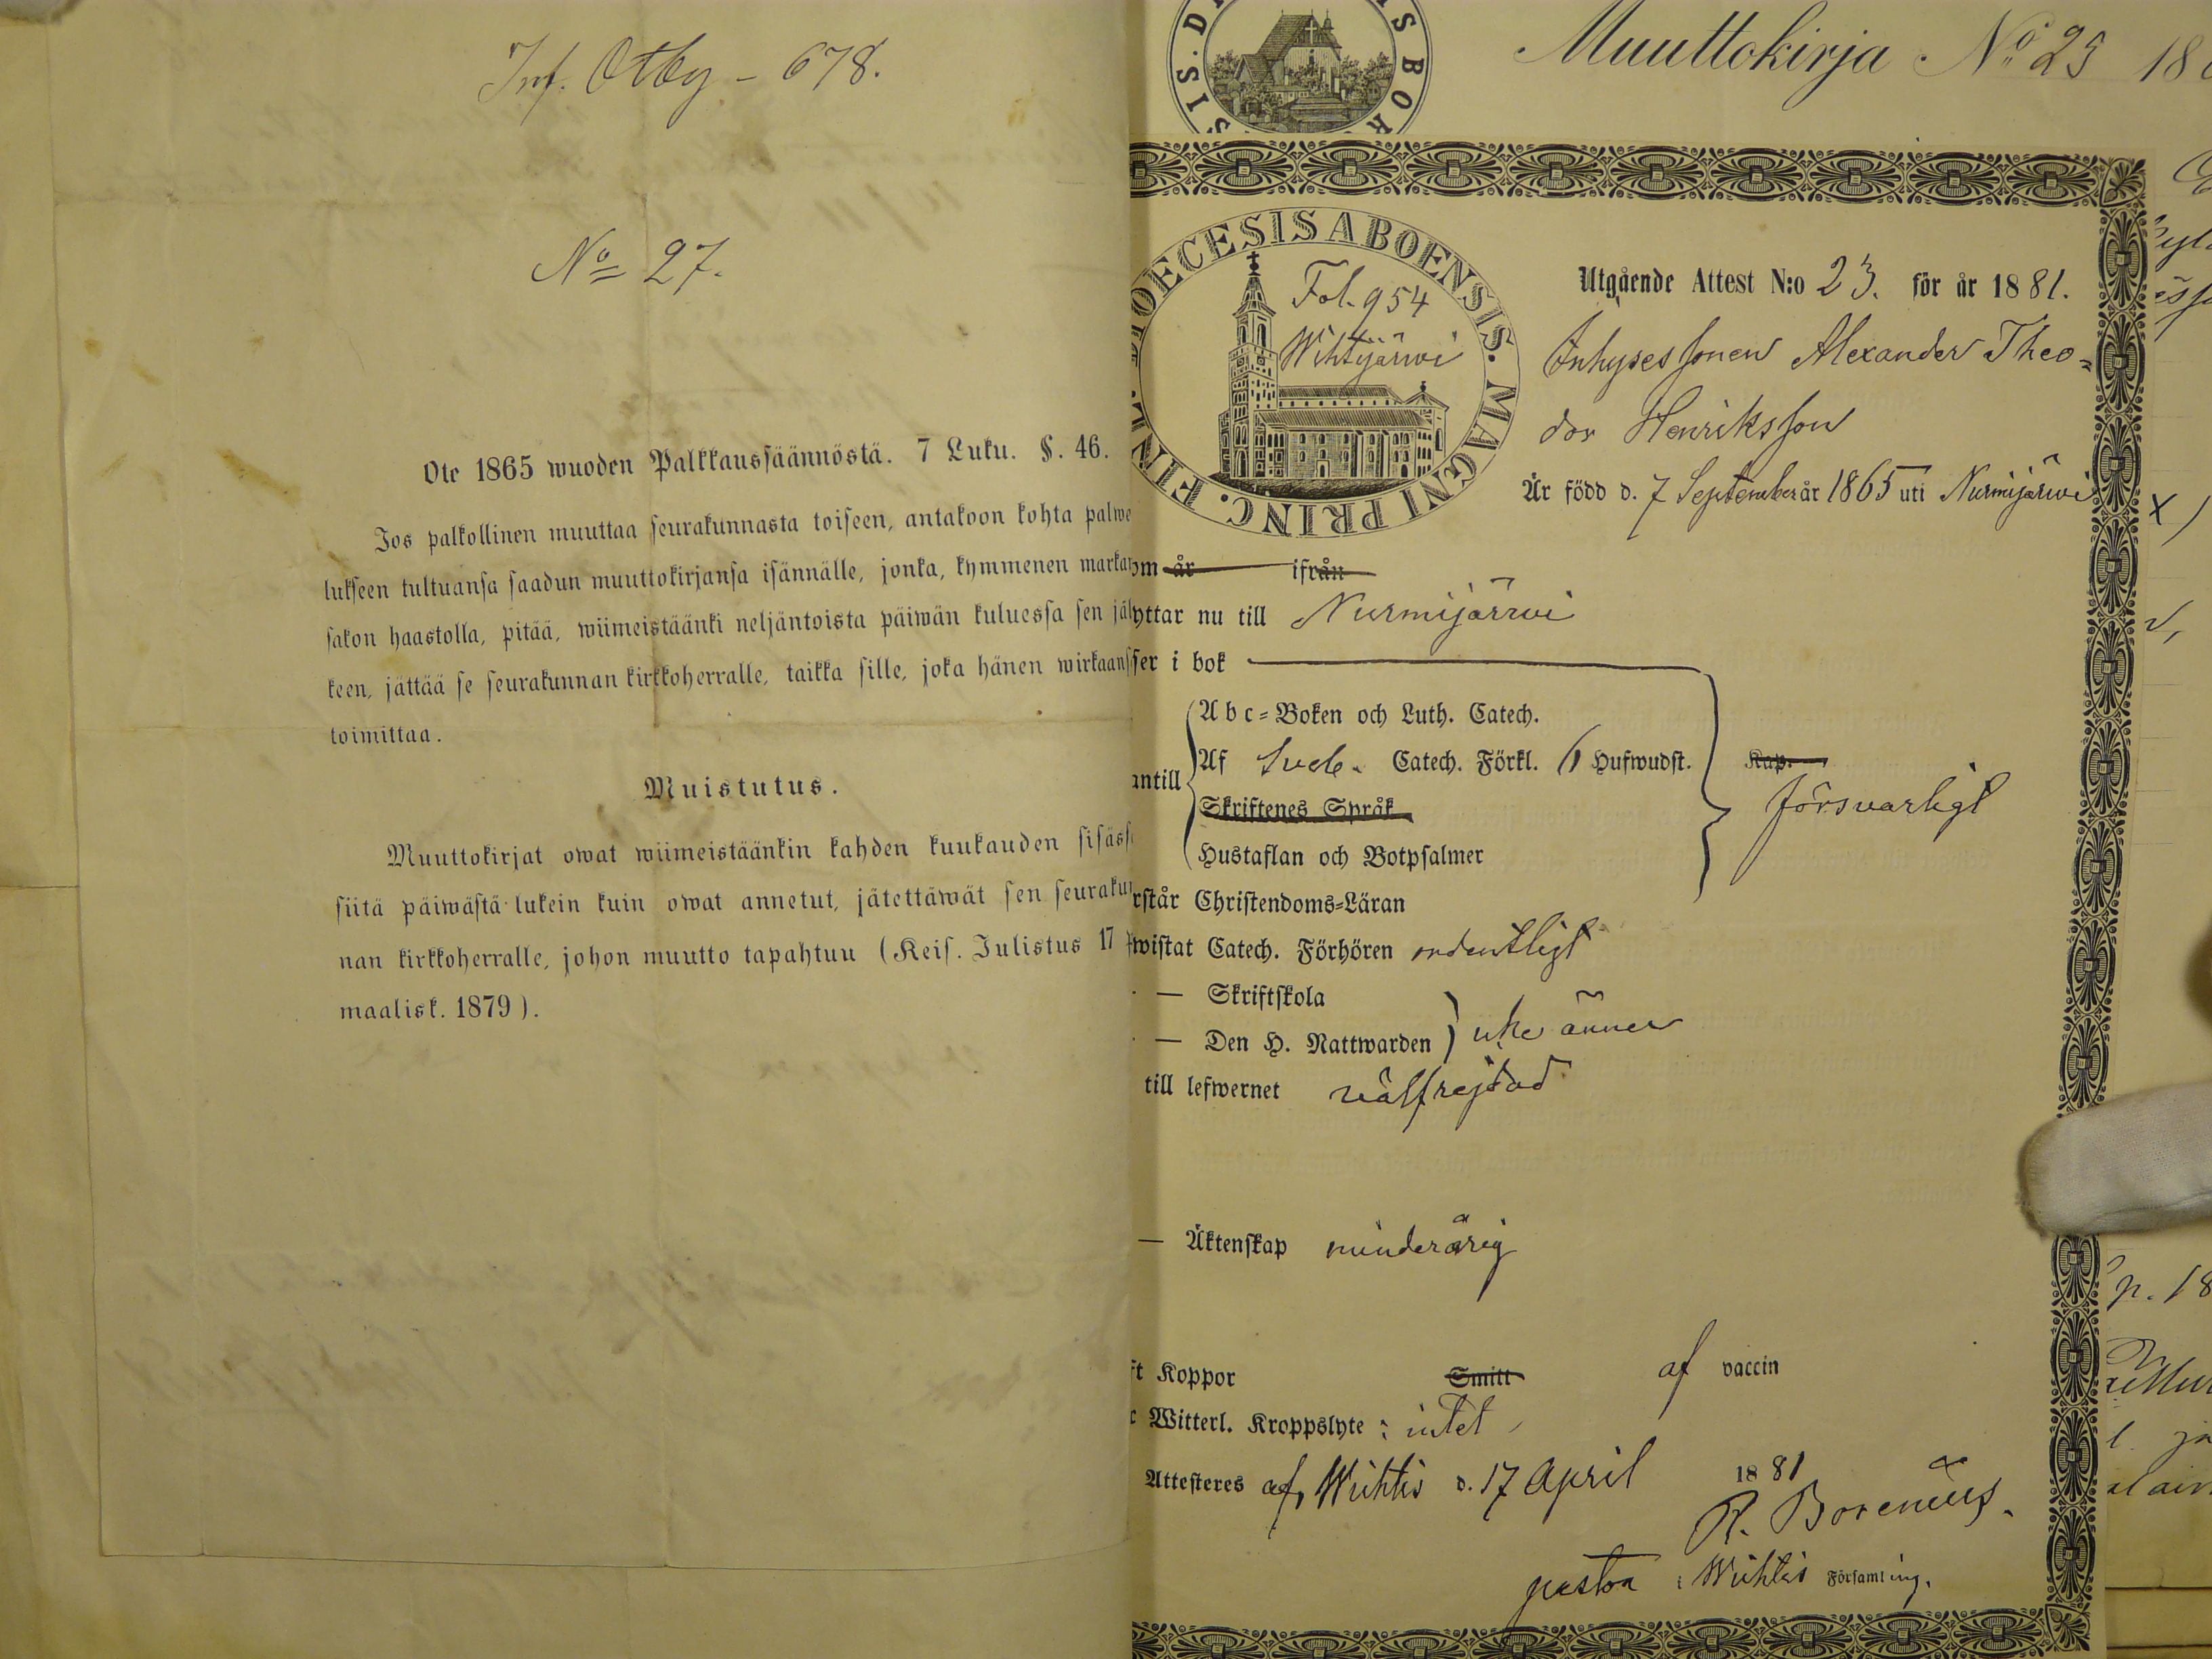 Inf. Otby - 678.
No 27.
Ote 1865 wuoden Palkkaussäännöstä. 7 Luku. §. 46.
Jos palkollinen muuttaa seurakunnasta toiseen, antakoon kohta palwe
lukseen tultuansa saadun muuttokirjansa isännälle, jonka, kymmenen markan
sakon haastolla, pitää, wiimeistäänki neljäntoista päiwän kuluessa sen jäl
keen, jättää se seurakunnan kirkkoherralle, taikka sille, joka hänen wirkaans
toimittaa.
Muistutus.
Muuttokirjat owat wiimeistäänkin kahden kuukauden sisäss
siitä päiwästä lukein kuin owat annetut, jätettäwät sen seurakun
nan kirkkoherralle, johon muutto tapahtuu (Keis. Julistus 17
maalisk. 1879).
Muuttokirja No 25 18
DIOECESIS ABOENSIS. MAGNI PRINC. FINL
Fol. 954
Wihtijärwi
Utgående Attest N:o 23. för år 1881.
Inhyses sonen Alexander Theo=
dor Henriksson
Är född d. 7 September år 1865 uti Nurmijärwi
om år ifrån
yttar nu till Nurmijärwi
ser i bok
Abc=Boken och Luth. Catech.
antill Af Sveb. Catech. Förkl. 6 Hufwudst. Kap.
Skriftenes Språk försvarligt
Hustaflan och Botpsalmer
rstår Christendoms=Läran
wistat Catech. Förhören ordentligt
— Skriftskola
— Den H. Nattwarden icke ännu
till lefwernet välfrejdad
— Äktenskap minderårig
ft Koppor Smitt af vaccin
Witterl. Kroppslyte: intet
Attesteres af Wichtis d. 17 April 1881
R. Borenius.
pastor i Wichtis Församling.